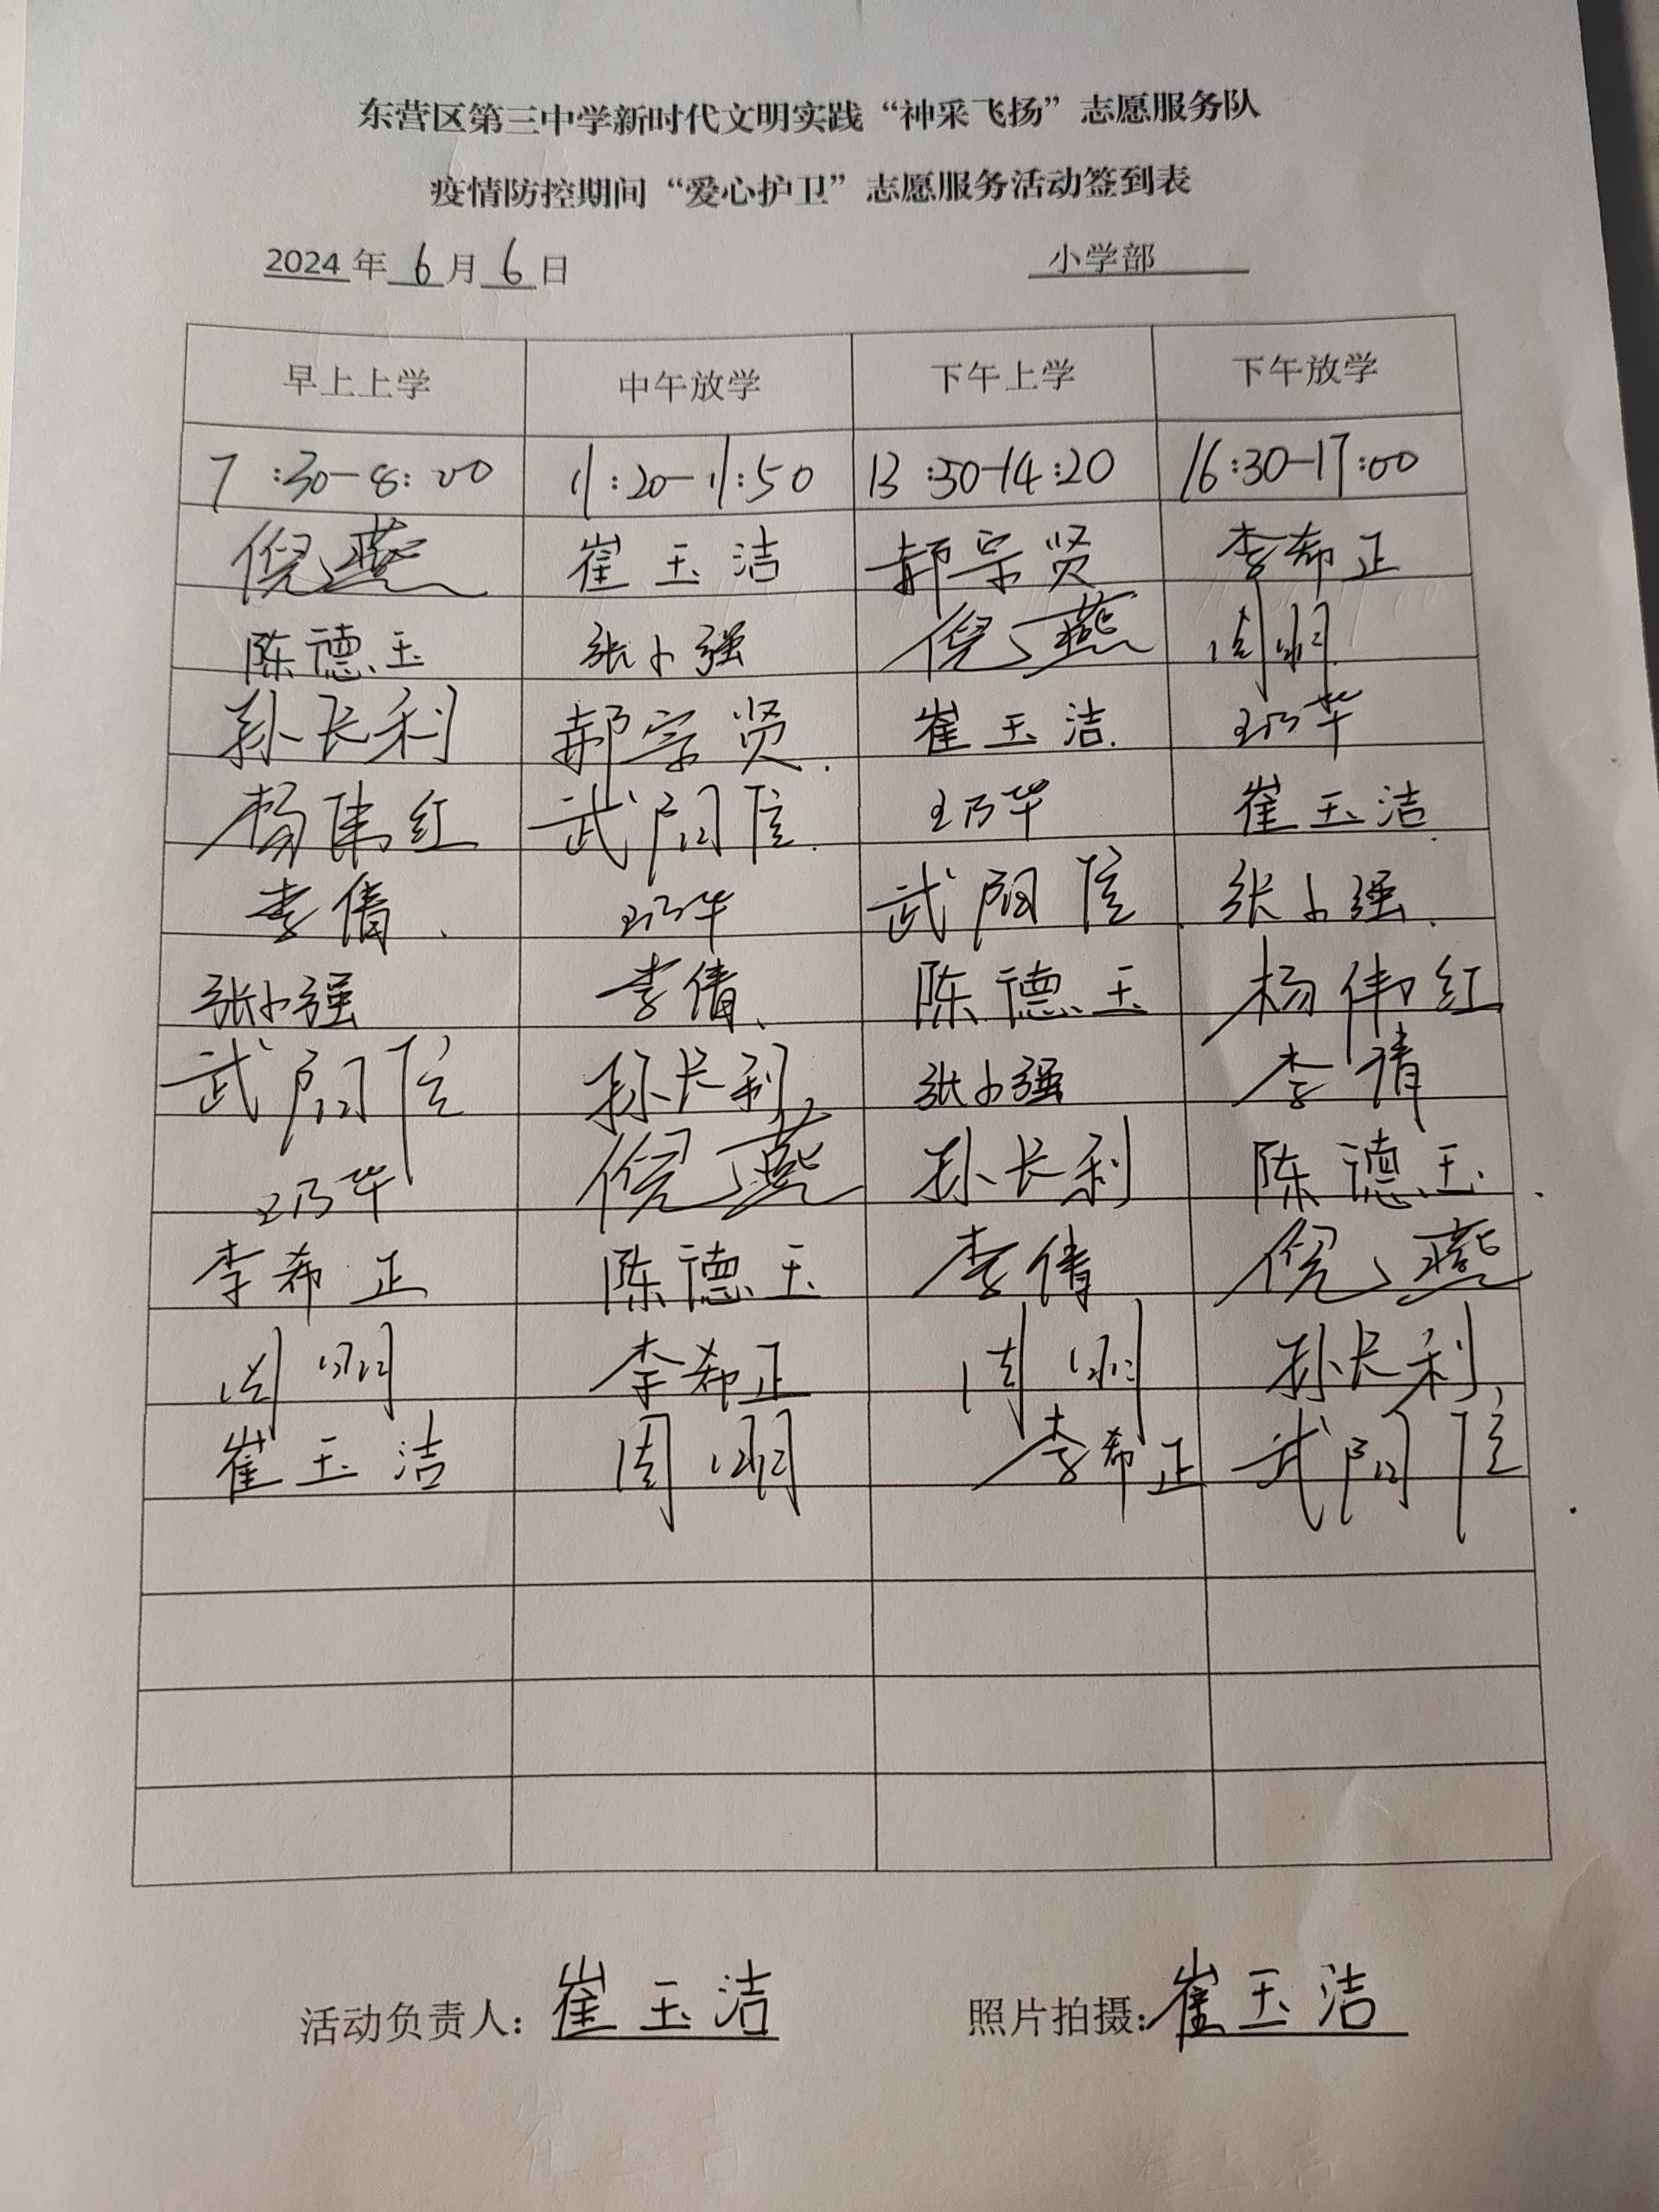 东营区第三中学新时代文明实践“神采飞扬”志愿服务队
疫情防控期间“爱心护卫”志愿服务活动签到表
2024年6月6日 小学部
早上上学 中午放学 下午上学 下午放学
7:30-8:00 11:20-11:50 13:50-14:20 16:30-17:00
倪燕 崔玉洁 郝宗贤 李希正
陈德玉 张小强 倪燕 周
孙长利 郝宗贤 崔玉洁 王乃华
杨伟红 武阳 王乃华 崔玉洁
李倩 王乃华 武阳 张小强
张小强 李倩 陈德玉 杨伟红
武阳 孙长利 张小强 李倩
王乃华 倪燕 孙长利 陈德玉
李希正 陈德玉 李倩 倪燕
周 李希正 周 孙长利
崔玉洁 周 李希正 武阳
活动负责人：崔玉洁 照片拍摄：崔玉洁